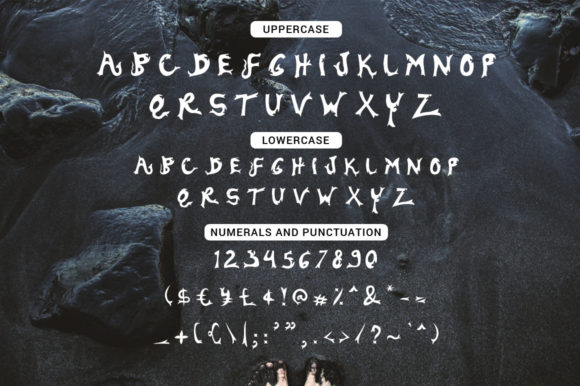 UPPERCASE
A B C D E F G H I J K L M N O P
Q R S T U V W X Y Z
LOWERCASE
A B C D E F G H I J K L M N O P
Q R S T U V W X Y Z
NUMERALS AND PUNCTUATION
1 2 3 4 5 6 7 8 9 0
( $ € ¥ £ ¢ ! @ # % ^ & * - =
_ + { } \ | ; : ' " , . < > / ? ~ ` ^ )